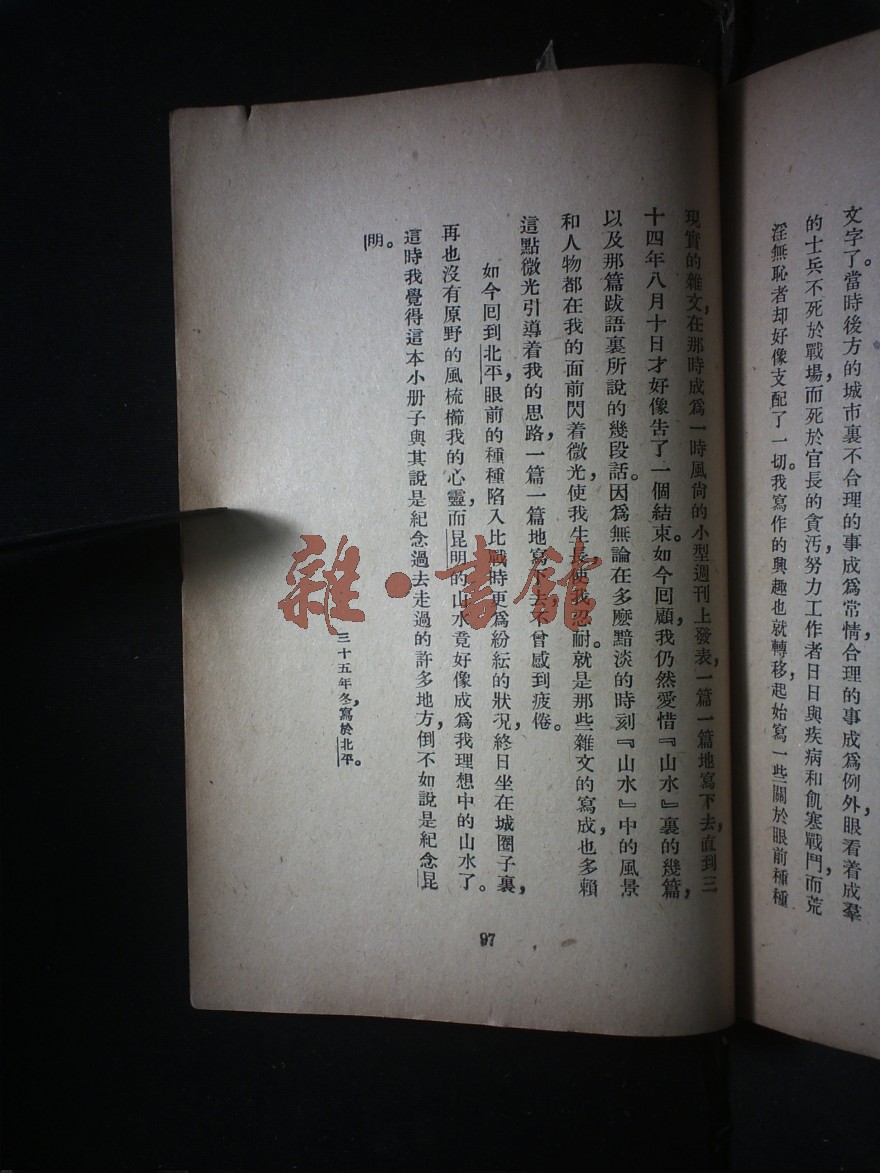 文字了。當時後方的城市裏不合理的事成爲常情合理的事成爲例外，眼看着成羣
的士兵不死於戰場，而死於官長的貪汚，努力工作者日日與疾病和飢寒戰鬥，而荒
淫無恥者却好像支配了一切。我寫作的興趣也就轉移，起始寫一些關於眼前種種
現實的雜文，在那時成爲一時風尚的小型週刊上發表，一篇一篇地寫下去，直到三
十四年八月十日才好像告了一個結束。如今回顧，我仍然愛惜『山水』裏的幾篇，
以及那篇跋語裏所說的幾段話。因爲無論在多麼黯淡的時刻，『山水』中的風景
和人物都在我的面前閃着微光，使我生長，使我忍耐。就是那些雜文的寫成，也多賴
這點微光引導着我的思路，一篇一篇地寫下去，不曾感到疲倦。
如今回到北平，眼前的種種陷入比戰時更爲紛紜的狀況，終日坐在城圈子裏，
再也沒有原野的風梳櫛我的心靈，而昆明的山水竟好像成爲我理想中的山水了。
這時我覺得這本小册子與其說是紀念過去走過的許多地方，倒不如說是紀念昆
明。
三十五年冬，寫於北平。
97
雜·書館